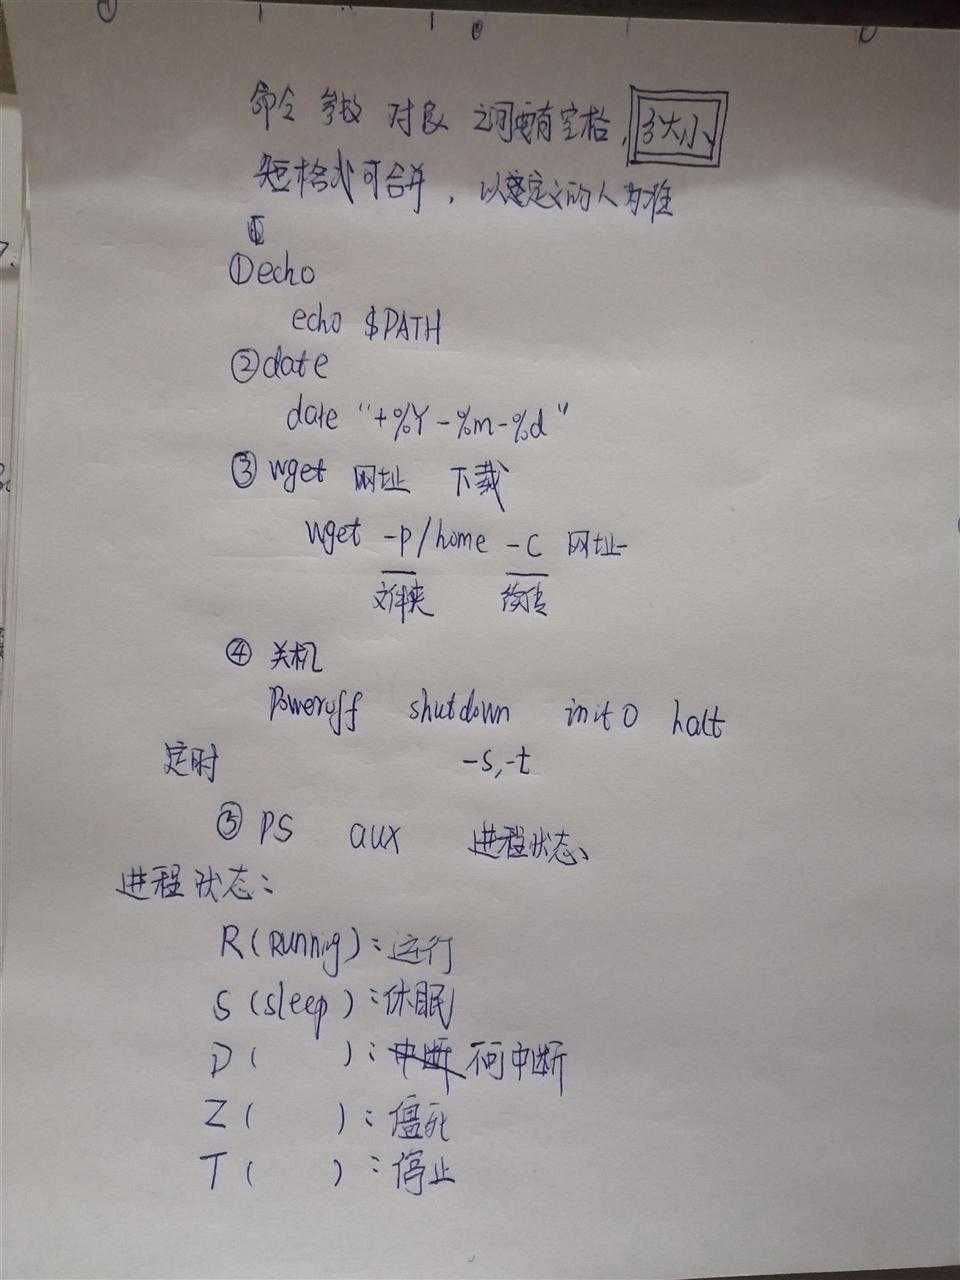 命令 参数 对象 之间要有空格,分大小
短格式可合并,以定义的人为准
①echo
echo $PATH
②date
date "+%Y-%m-%d"
③ wget 网址 下载
wget -P/home -C 网址
文件夹 续传
④ 关机
Poweroff shutdown init 0 halt
定时 -s,-t
⑤ PS aux 进程状态
进程状态:
R(Running):运行
S(sleep):休眠
D( ):不可中断
Z( ):僵死
T( ):停止